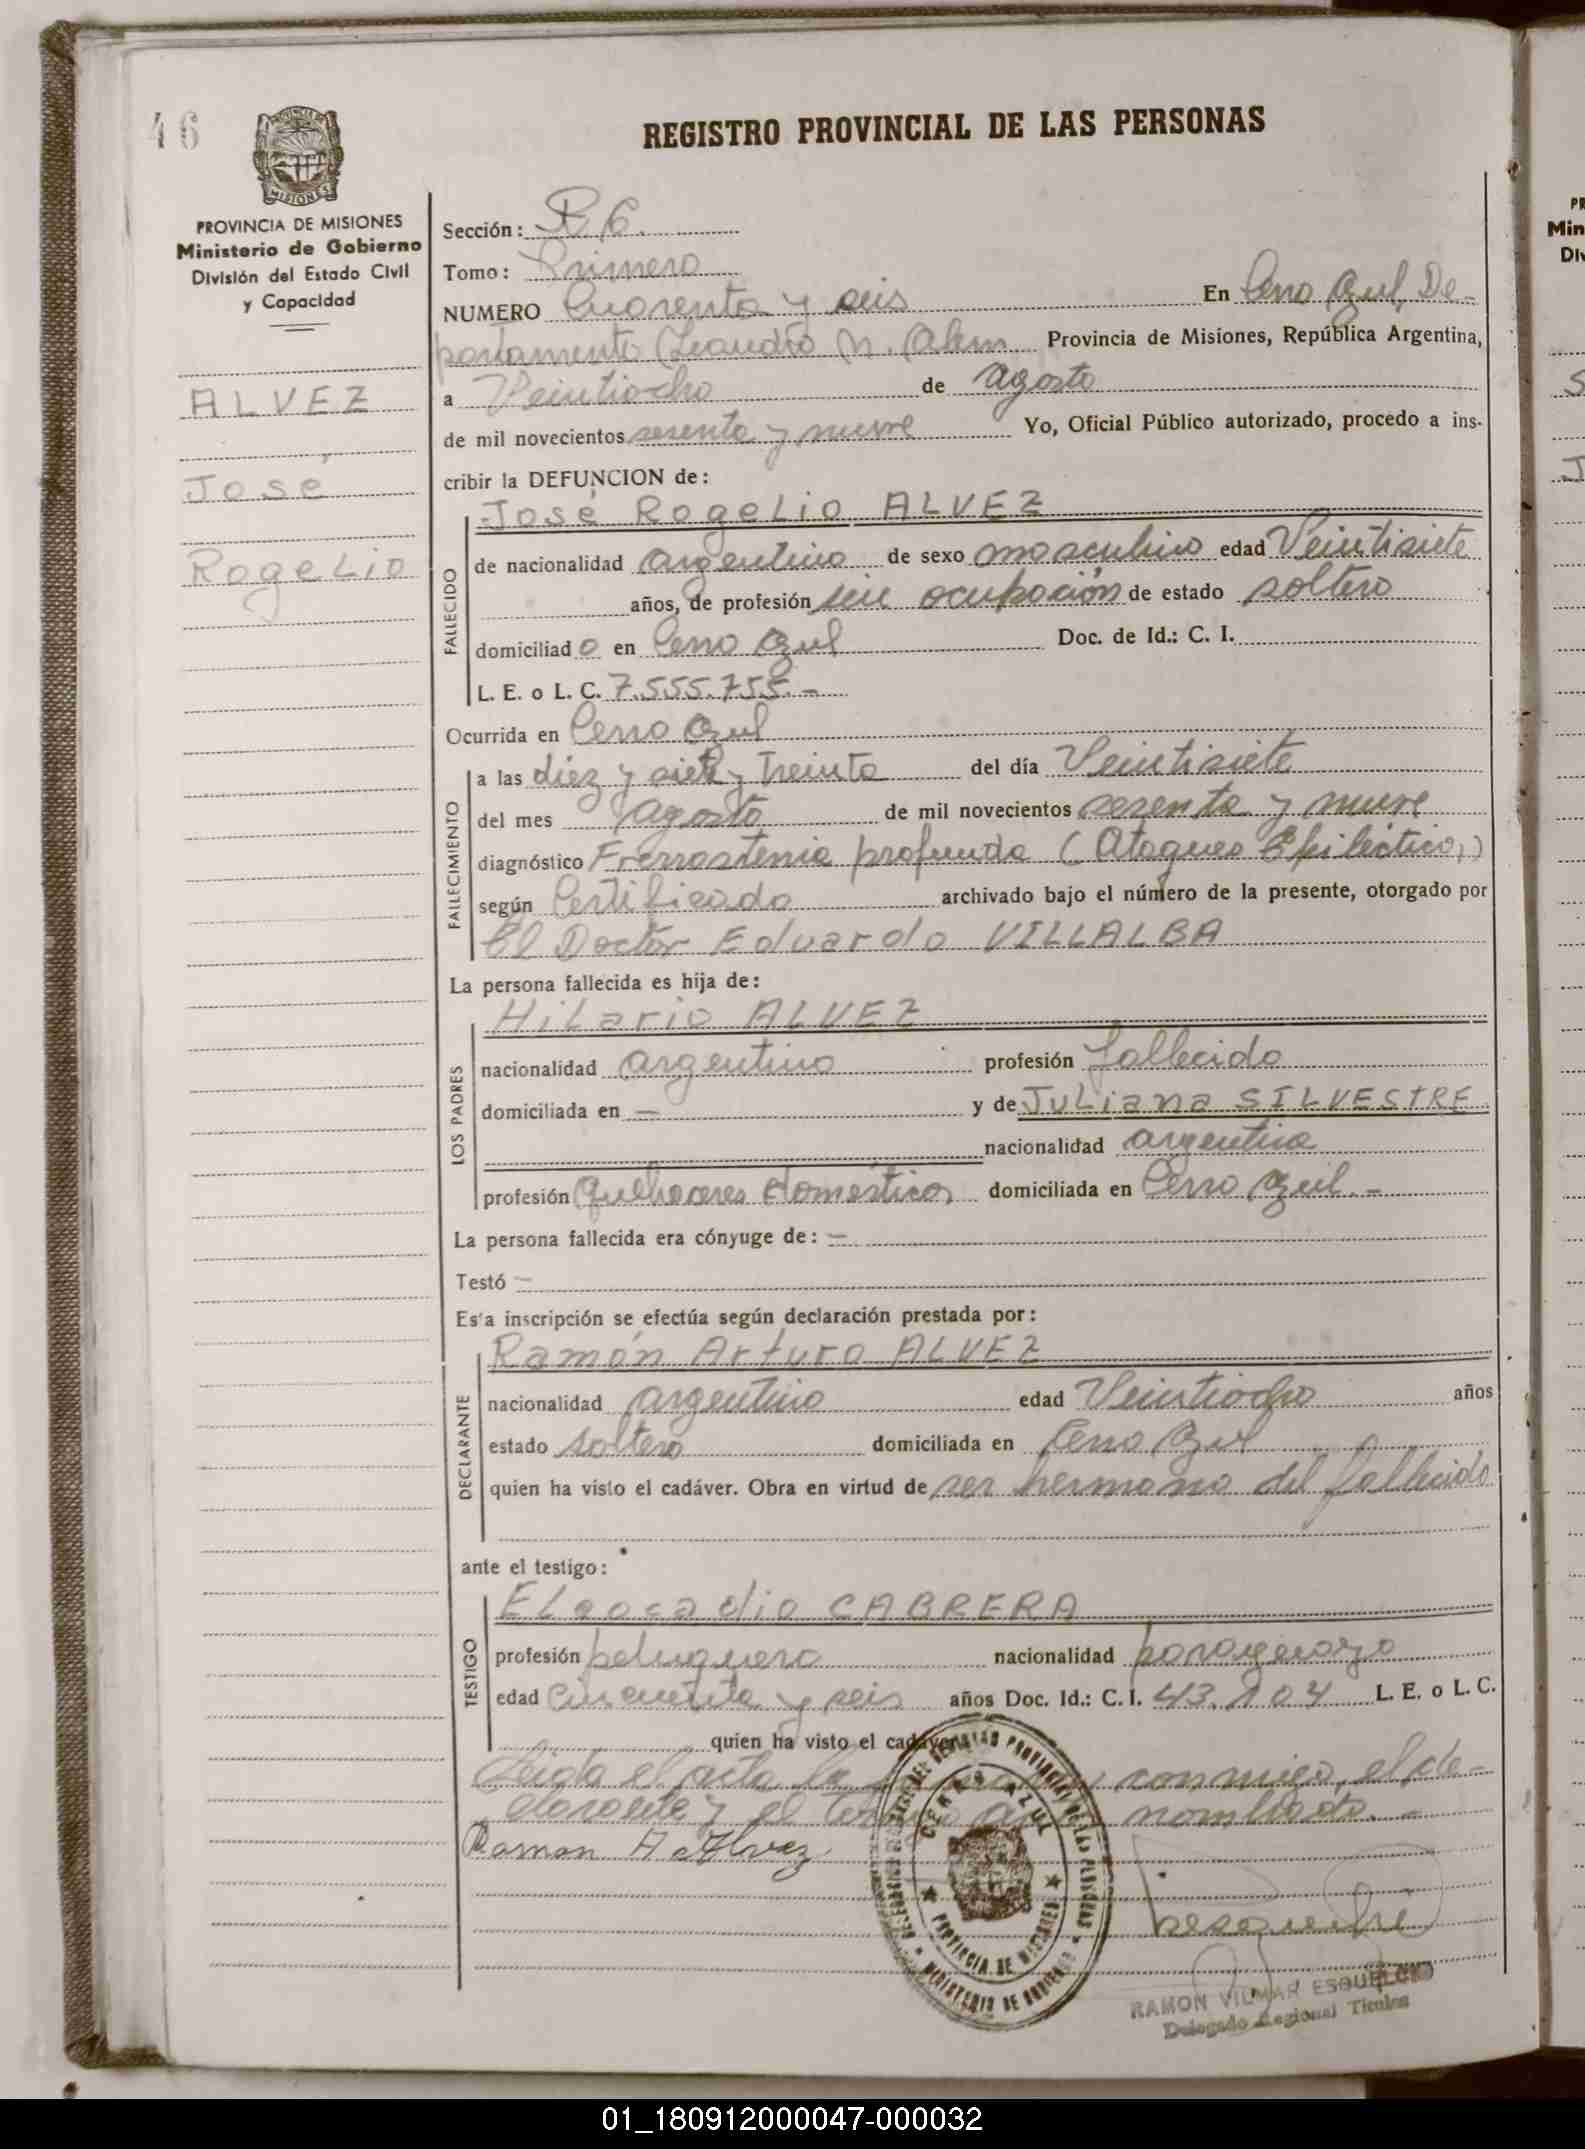 46
PROVINCIA DE MISIONES
Ministerio de Gobierno
División del Estado Civil
y Capacidad
ALVEZ
José
Rogelio
REGISTRO PROVINCIAL DE LAS PERSONAS
Sección: R.6.
Tomo: Primero
NUMERO Cuarenta y seis En Cerro Azul, De-
partamento Leandro N. Alem Provincia de Misiones, República Argentina,
a Veintiocho de agosto
de mil novecientos sesenta y nueve Yo, Oficial Público autorizado, procedo a ins-
cribir la DEFUNCION de:
José Rogelio ALVEZ
FALLECIDO
de nacionalidad argentino de sexo masculino edad Veintisiete
años, de profesión sin ocupación de estado soltero
domiciliado en Cerro Azul Doc. de Id.: C. I.
L. E. o L. C. 7.555.755.-
Ocurrida en Cerro Azul
FALLECIMIENTO
a las diez y siete y treinta del día Veintisiete
del mes agosto de mil novecientos sesenta y nueve
diagnóstico profunda (Ataques Epilécticos)
según Certificado archivado bajo el número de la presente, otorgado por
El Doctor Eduardo VILLALBA
La persona fallecida es hija de:
Hilario ALVEZ
LOS PADRES
nacionalidad argentino profesión fallecido
domiciliada en — y de Juliana SILVESTRE
nacionalidad argentina
profesión Quehaceres domésticos domiciliada en Cerro Azul.-
La persona fallecida era cónyuge de: —
Testó —
Esta inscripción se efectúa según declaración prestada por:
Ramón Arturo ALVEZ
DECLARANTE
nacionalidad argentino edad Veintiocho años
estado soltero domiciliada en Cerro Azul
quien ha visto el cadáver. Obra en virtud de ser hermano del fallecido
ante el testigo:
ELeocadio CABRERA
TESTIGO
profesión peluquero nacionalidad paraguayo
edad Cincuenta y seis años Doc. Id.: C. I. 43.104 L. E. o L. C.
quien ha visto el cadáver
Leida el acta la conmigo, el de-
clarante y el testigo nombrado.-
Ramon A Alvez
CERRO AZUL
PROVINCIA DE MISIONES
MINISTERIO DE GOBIERNO
RAMON VILMAR ESQUELCIO
Delegado Regional Titular
01_180912000047-000032